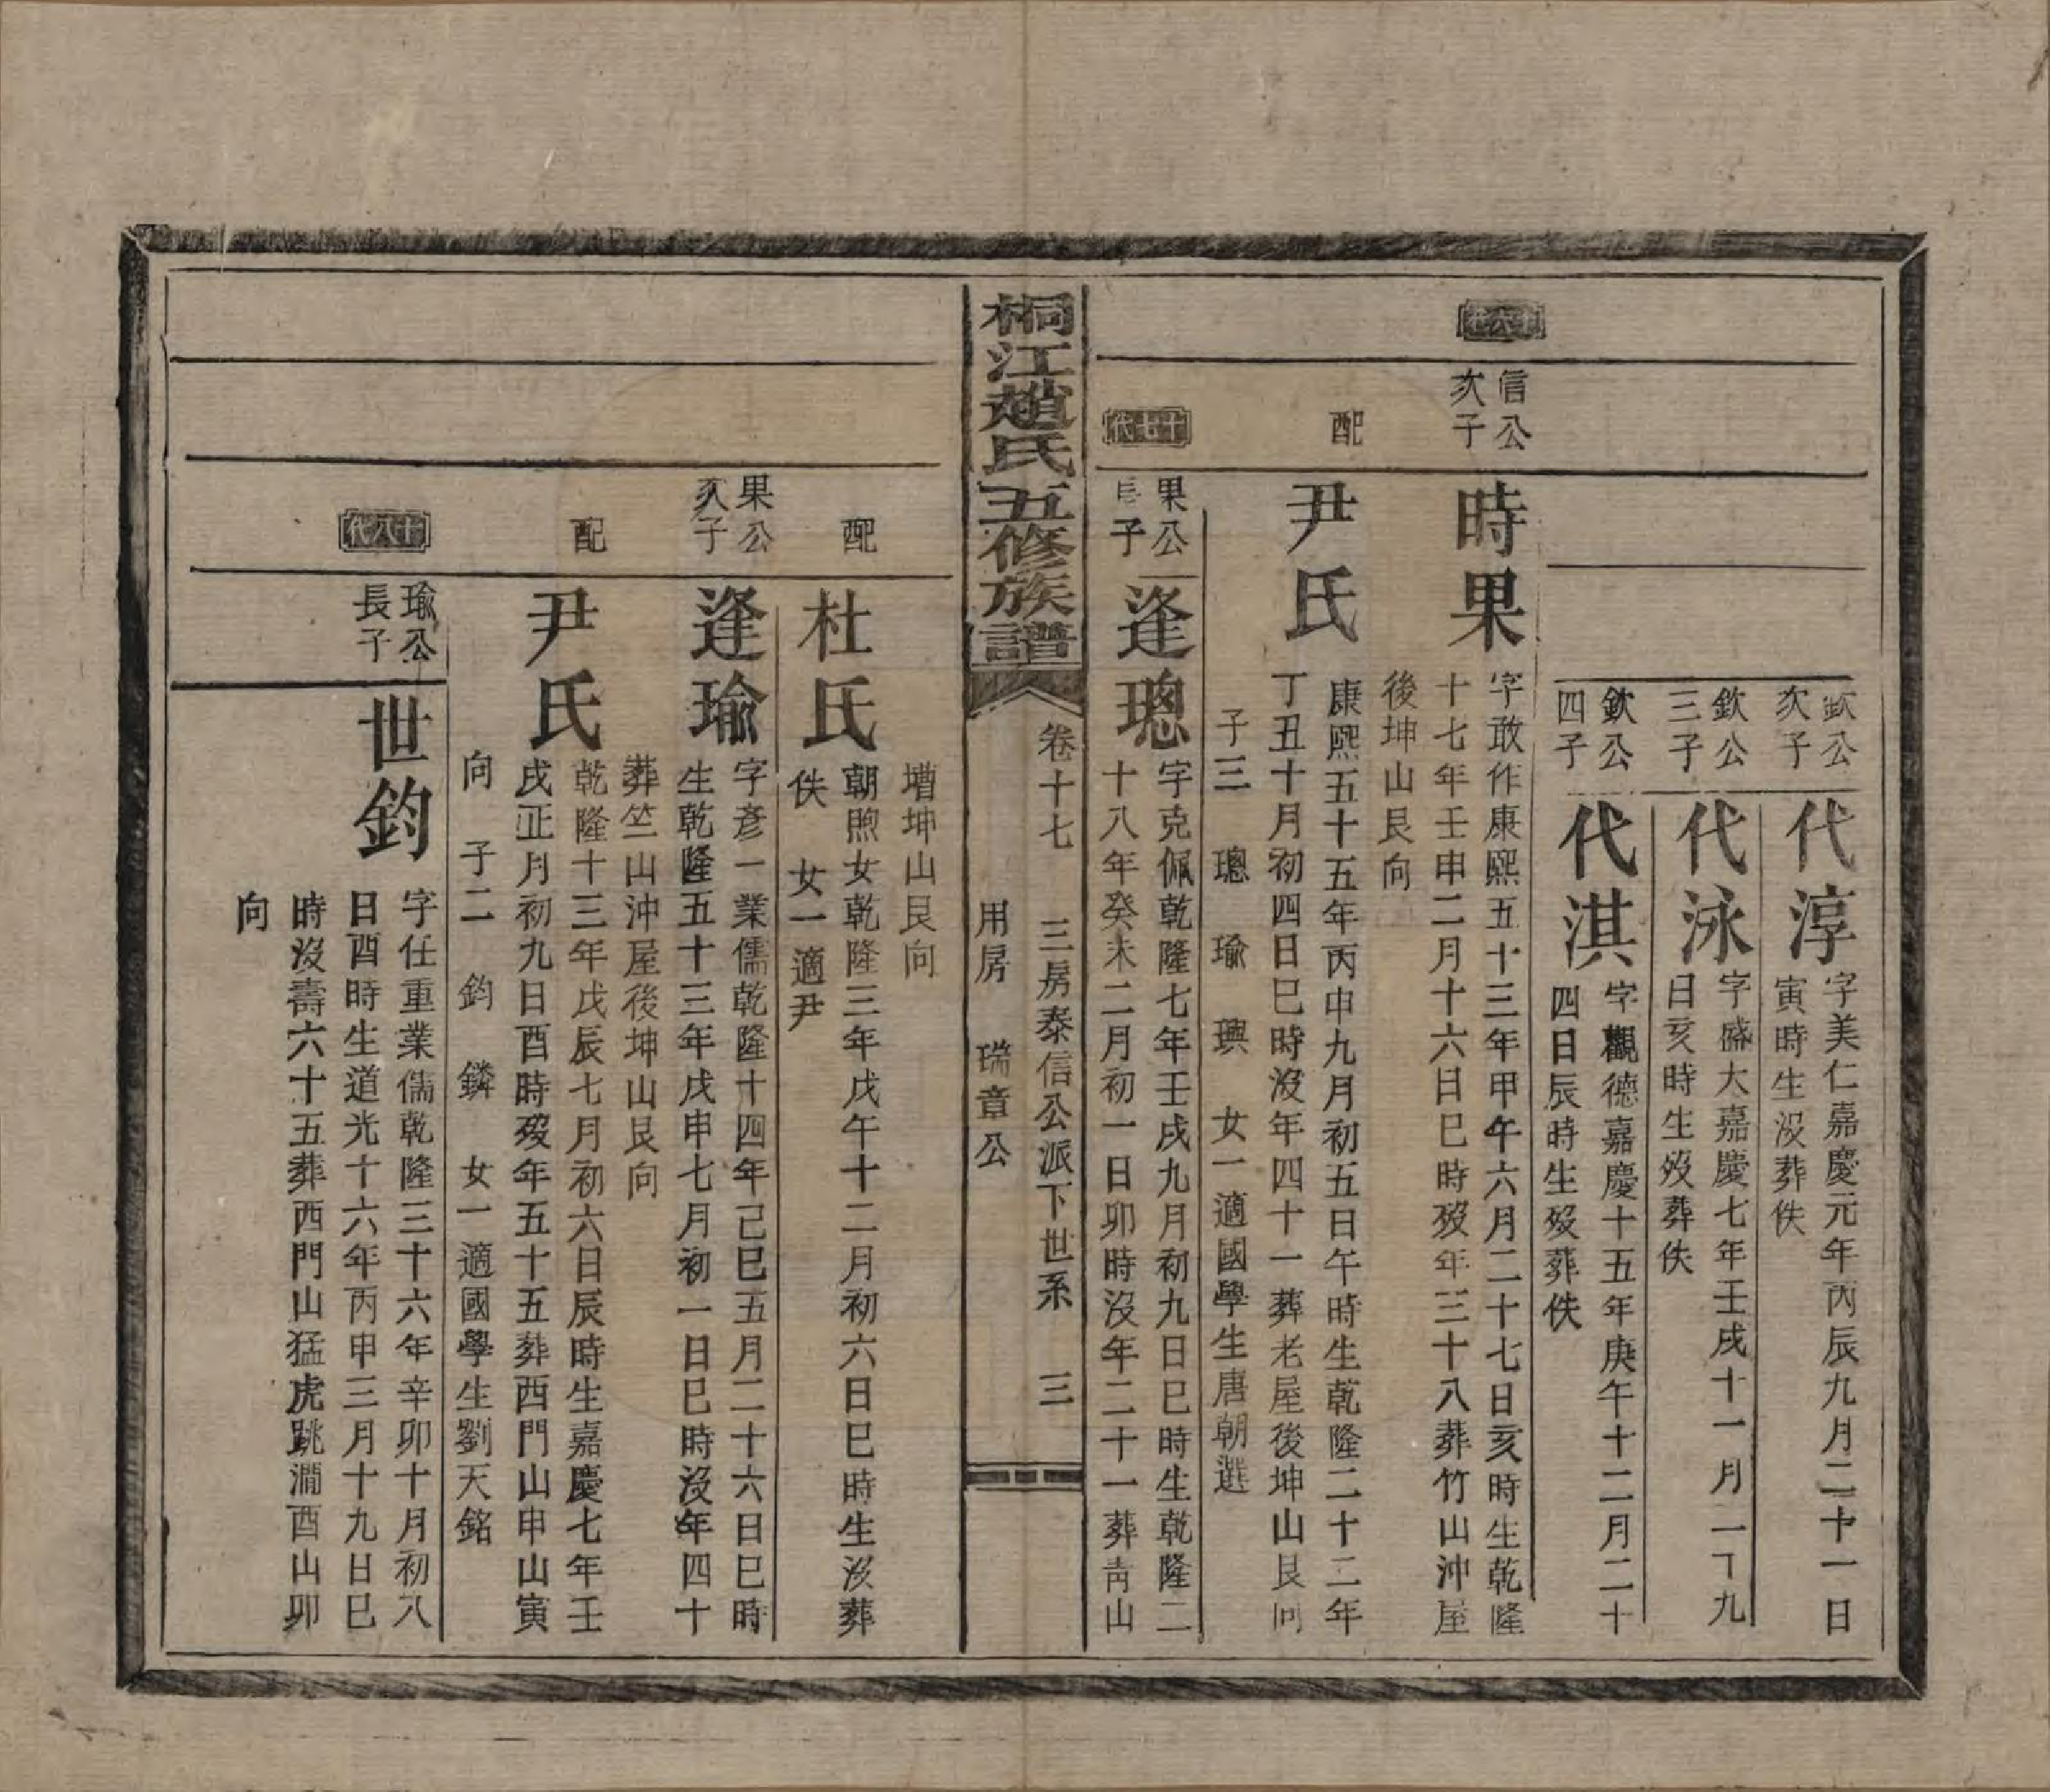 欽公
次子
代淳
字美仁嘉慶元年丙辰九月二十一日
寅時生没葬佚
欽公
三子
代泳
字盛大嘉慶七年壬戌十一月二十九
日亥時生歿葬佚
欽公
四子
代淇
字觀德嘉慶十五年庚午十二月二十
四日辰時生歿葬佚
十六代
信公
次子
時果
字敢作康熙五十三年甲午六月二十七日亥時生乾隆
十七年壬申二月十六日巳時歿年三十八葬竹山沖屋
後坤山艮向
配
尹氏
康熙五十五年丙申九月初五日午時生乾隆二十二年
丁丑十月初四日巳時沒年四十一葬老屋後坤山艮向
子三 璁 瑜 璵 女一適國學生唐朝選
十七代
果公
長子
逢璁
字克佩乾隆七年壬戌九月初九日巳時生乾隆二
十八年癸未二月初一日卯時沒年二十一葬靑山
桐江趙氏五修族譜
卷十七 三房泰信公派下世系 三
用房 瑞章公
壋坤山艮向
配
杜氏
朝煦女乾隆三年戊午十二月初六日巳時生沒葬
佚 女一適尹
果公
次子
逢瑜
字彥一業儒乾隆十四年己巳五月二十六日巳時
生乾隆五十三年戊申七月初一日巳時沒年四十
葬竺山沖屋後坤山艮向
配
尹氏
乾隆十三年戊辰七月初六日辰時生嘉慶七年壬
戌正月初九日酉時歿年五十五葬西門山申山寅
向 子二 鈞 鏻 女一適國學生劉天銘
十八代
瑜公
長子
世鈞
字任重業儒乾隆三十六年辛卯十月初八
日酉時生道光十六年丙申三月十九日巳
時沒壽六十五葬西門山猛虎跳澗酉山卯
向